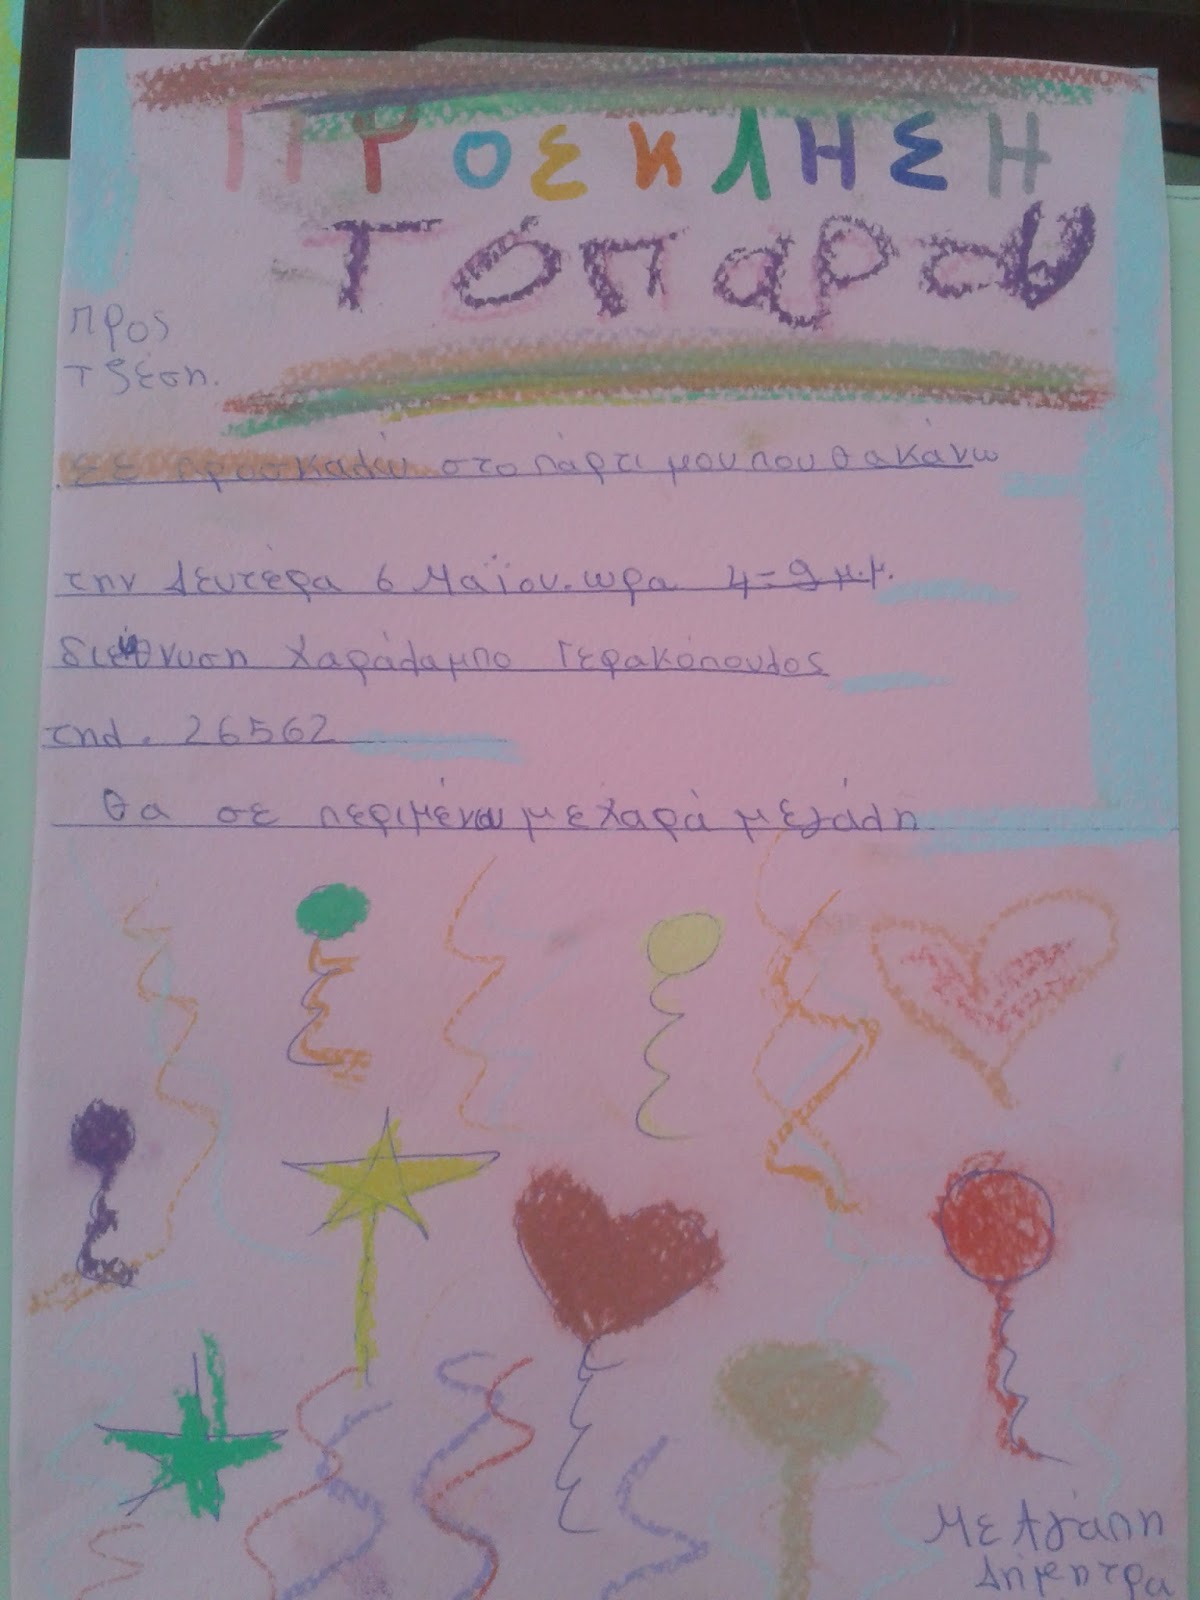 ΠΡΟΣΚΛΗΣΗ
Τόπαρου
προς
τζέση.
Σε προσκαλώ στο πάρτι μου που θα κάνω
την Δευτέρα 6 Μαϊου. ωρα 4=9 μ.μ.
διεύθνυση Χαράλαμπο Γερακόπουλος
τηλ. 26562
θα σε περιμένω με χαρά μεγάλη
Με Αγάπη
Δήμητρα